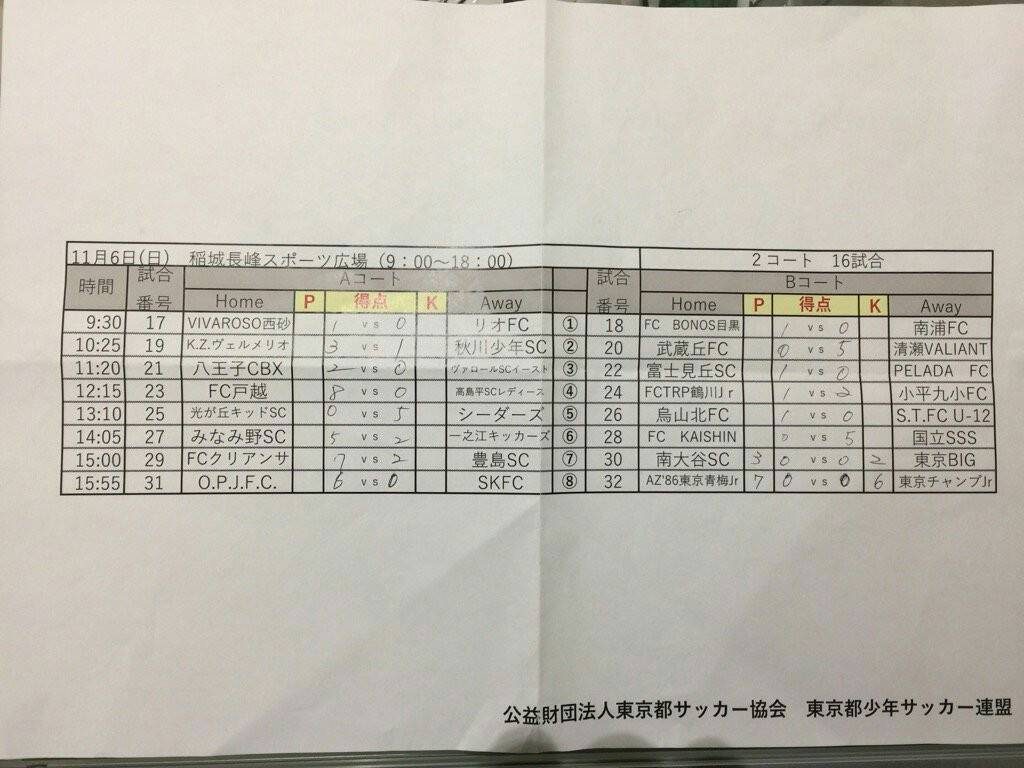 11月6日(日)　稲城長峰スポーツ広場（9：00～18：00）　2コート　16試合
時間　試合番号　Aコート　試合番号　Bコート
Home　P　得点　K　Away　Home　P　得点　K　Away
9:30　17　VIVAROSO西砂　1 vs 0　リオFC　①　18　FC　BONOS目黒　1 vs 0　南浦FC
10:25　19　K.Z.ヴェルメリオ　3 vs 1　秋川少年SC　②　20　武蔵丘FC　0 vs 5　清瀬VALIANT
11:20　21　八王子CBX　2 vs 0　ヴァロールSCイースト　③　22　富士見丘SC　1 vs 0　PELADA　FC
12:15　23　FC戸越　8 vs 0　高島平SCレディース　④　24　FCTRP鶴川Jｒ　1 vs 2　小平九小FC
13:10　25　光が丘キッドSC　0 vs 5　シーダーズ　⑤　26　烏山北FC　1 vs 0　S.T.FC U-12
14:05　27　みなみ野SC　5 vs 2　一之江キッカーズ　⑥　28　FC　KAISHIN　0 vs 5　国立SSS
15:00　29　FCクリアンサ　7 vs 2　豊島SC　⑦　30　南大谷SC　3　0 vs 0　2　東京BIG
15:55　31　O.P.J.F.C.　6 vs 0　SKFC　⑧　32　AZ'86東京青梅Jr　7　0 vs 0　6　東京チャンプJr
公益財団法人東京都サッカー協会　東京都少年サッカー連盟